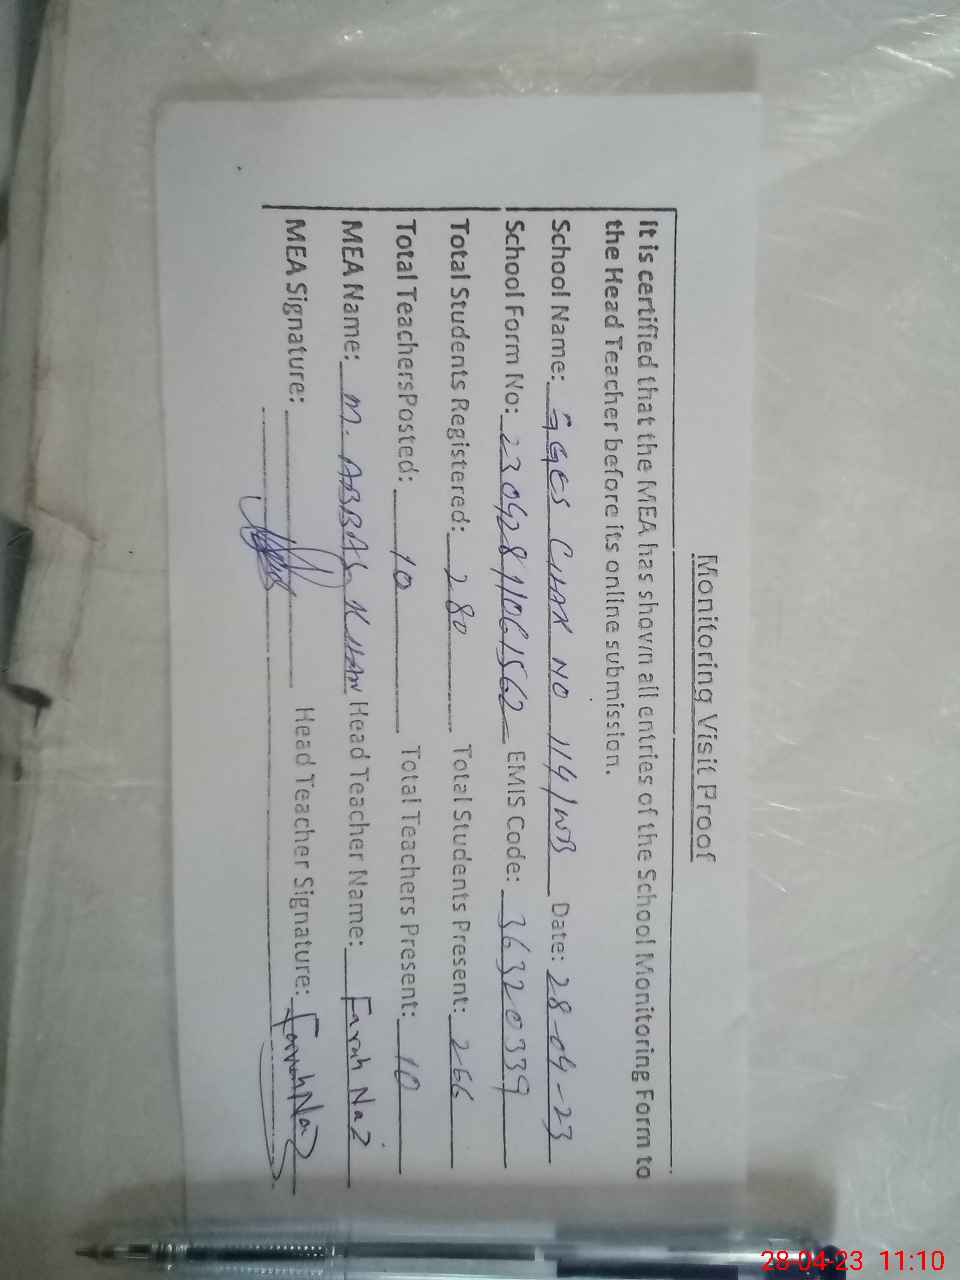 Monitoring Visit Proof
It is certified that the MEA has shown all entries of the School Monitoring Form to
the Head Teacher before its online submission.
School Name: GGES CHAK NO 114/WB Date: 28-04-23
School Form No: 23042811061562 EMIS Code: 36320339
Total Students Registered: 280 Total Students Present: 266
Total TeachersPosted: 10 Total Teachers Present: 10
MEA Name: M. ABBAS KHAN Head Teacher Name: Farah Naz
MEA Signature: Head Teacher Signature: Farrah Naz
28-04-23 11:10